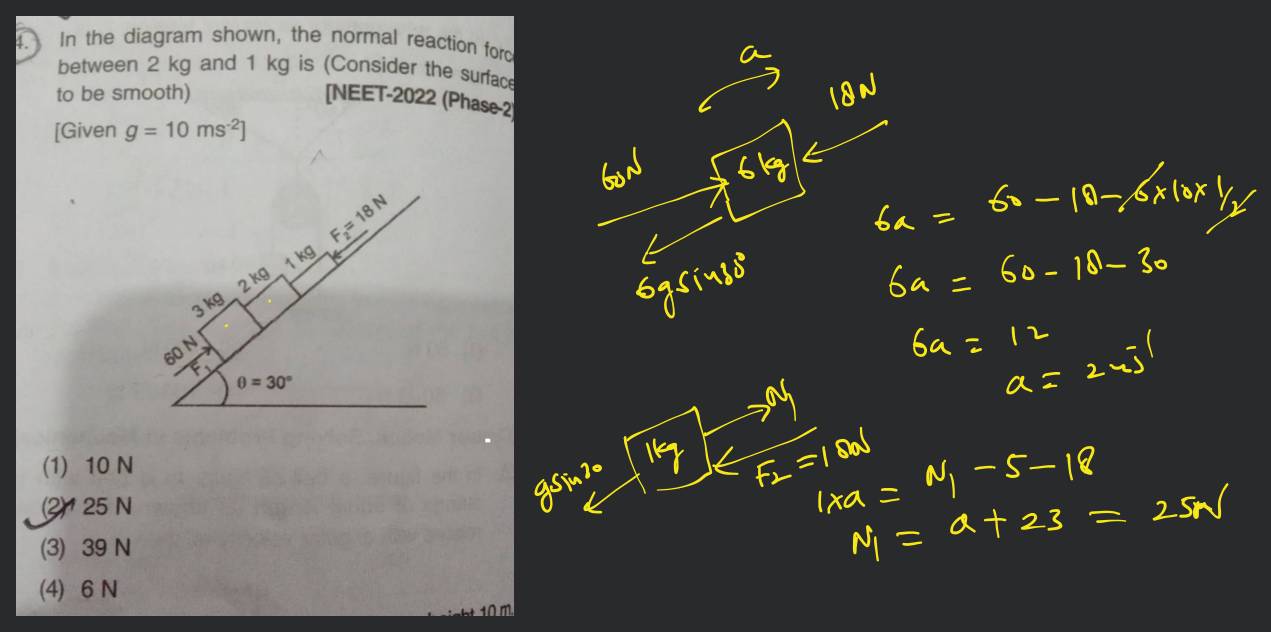 4.
In the diagram shown, the normal reaction forc
between 2 kg and 1 kg is (Consider the surface
to be smooth) [NEET-2022 (Phase-2)
[Given g = 10 ms⁻²]
60 N
F₁
3 kg
2 kg
1 kg
F₂= 18 N
θ = 30°
(1) 10 N
(2) 25 N
(3) 39 N
(4) 6 N
10 m.
a
60N
6kg
18N
6gsin30°
6a = 60 - 18 - 6x10x1/2
6a = 60 - 18 - 30
6a = 12
a = 2 ms⁻¹
1kg
N₁
gsin30
F₂ = 18N
1xa = N₁ - 5 - 18
N₁ = a + 23 = 25N